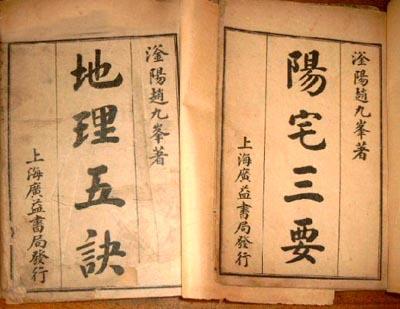 滏陽趙九峯著
陽宅三要
上海廣益書局發行
滏陽趙九峯著
地理五訣
上海廣益書局發行